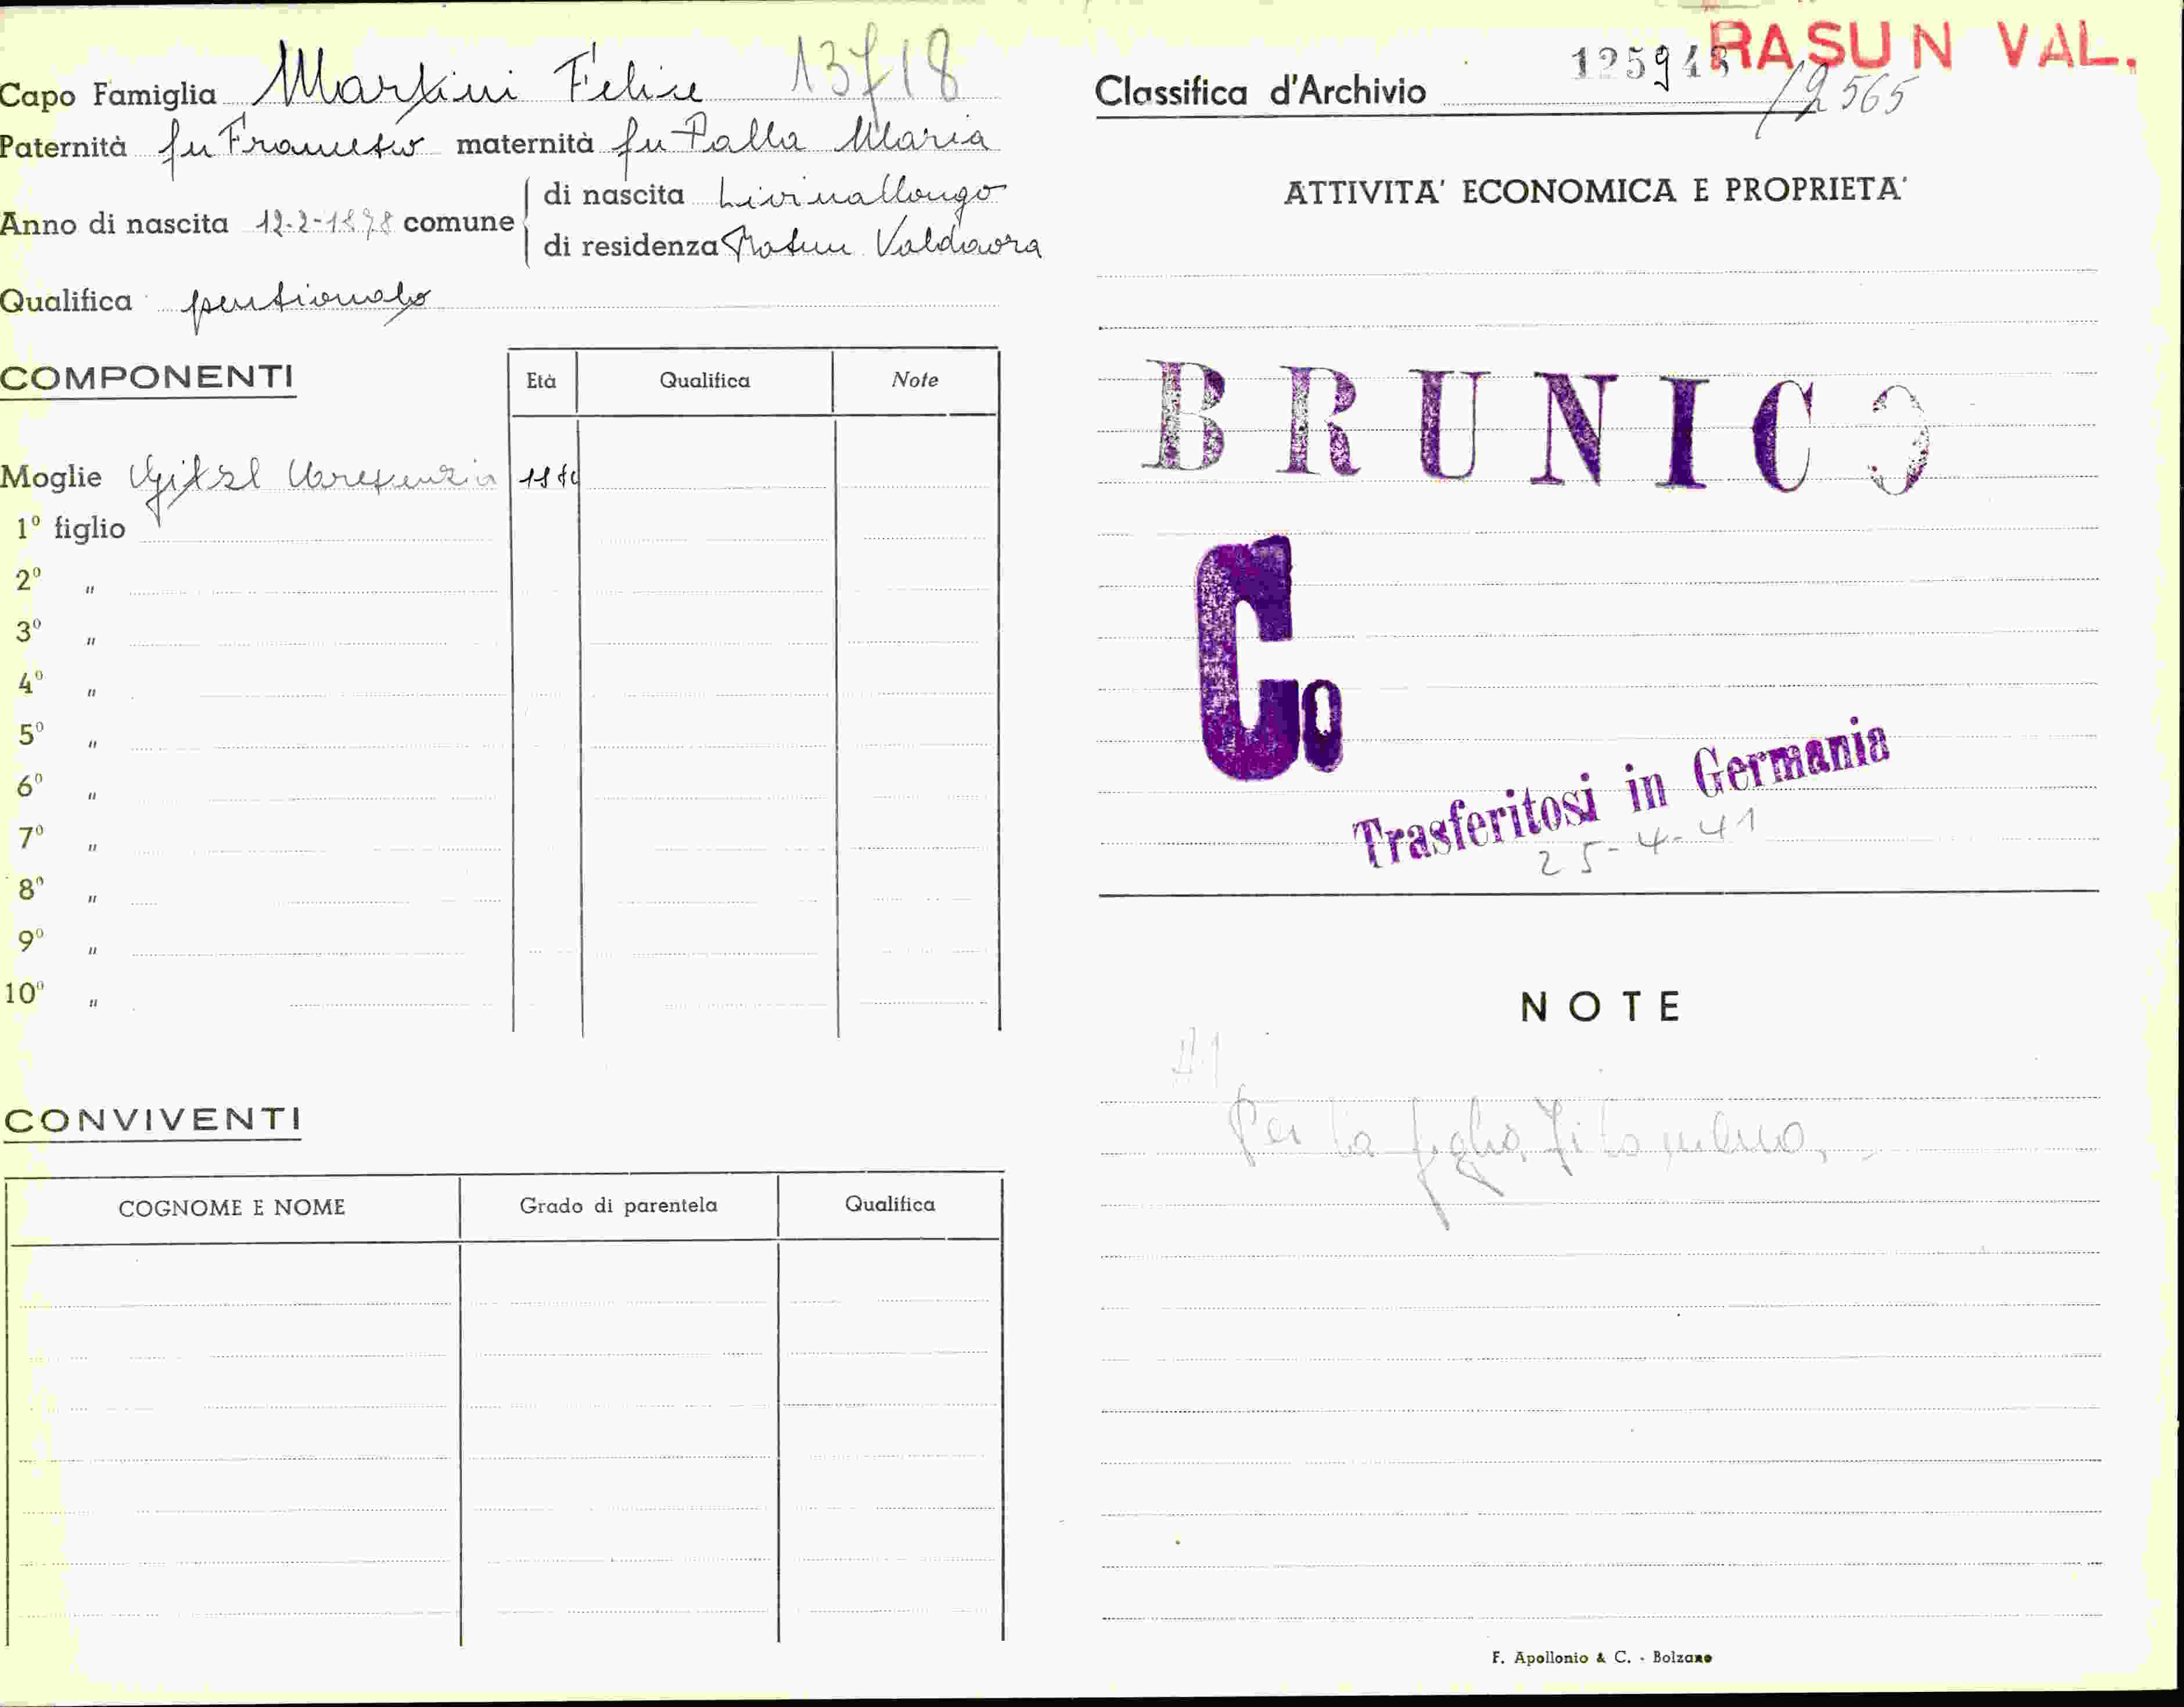 Capo Famiglia Martini Felice 13718
Paternità fu Francesco maternità fu Palla Maria
Anno di nascita 12-2-1878 comune
di nascita Livinallongo
di residenza Rasun Valdaora
Qualifica pensionato
COMPONENTI
Età Qualifica Note
Moglie
1º figlio
2º "
3º "
4º "
5º "
6º "
7º "
8º "
9º "
10º "
CONVIVENTI
COGNOME E NOME Grado di parentela Qualifica
RASUN VAL.
Classifica d'Archivio 125948 /2565
ATTIVITA' ECONOMICA E PROPRIETA'
BRUNICO
Co
Trasferitosi in Germania
25-4-41
NOTE
Per la figlia
F. Apollonio & C. - Bolzano